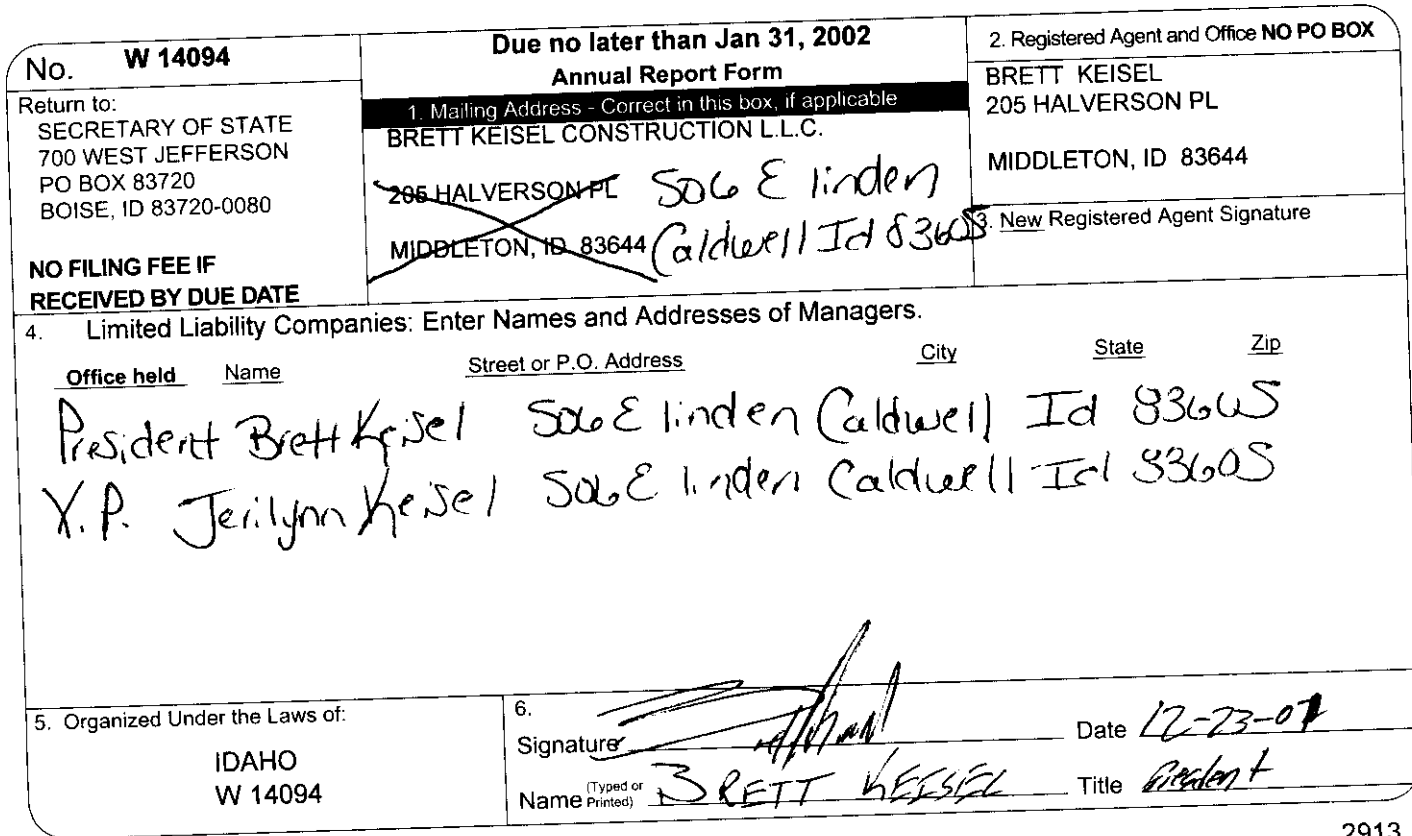 No. W 14094
Return to:
SECRETARY OF STATE
700 WEST JEFFERSON
PO BOX 83720
BOISE, ID 83720-0080
NO FILING FEE IF
RECEIVED BY DUE DATE
Due no later than Jan 31, 2002
Annual Report Form
1. Mailing Address - Correct in this box, if applicable
BRETT KEISEL CONSTRUCTION L.L.C.
205 HALVERSON PL 506 E linden
MIDDLETON, ID 83644 Caldwell Id 83605
2. Registered Agent and Office NO PO BOX
BRETT KEISEL
205 HALVERSON PL
MIDDLETON, ID 83644
3. New Registered Agent Signature
4. Limited Liability Companies: Enter Names and Addresses of Managers.
Office held Name Street or P.O. Address City State Zip
President Brett Keisel 506 E linden Caldwell Id 83605
V.P. Jerilynn Keisel 506 E linden Caldwell Id 83605
5. Organized Under the Laws of:
IDAHO
W 14094
6.
Signature Date 12-23-01
Name (Typed or Printed) BRETT KEISEL Title President
2913